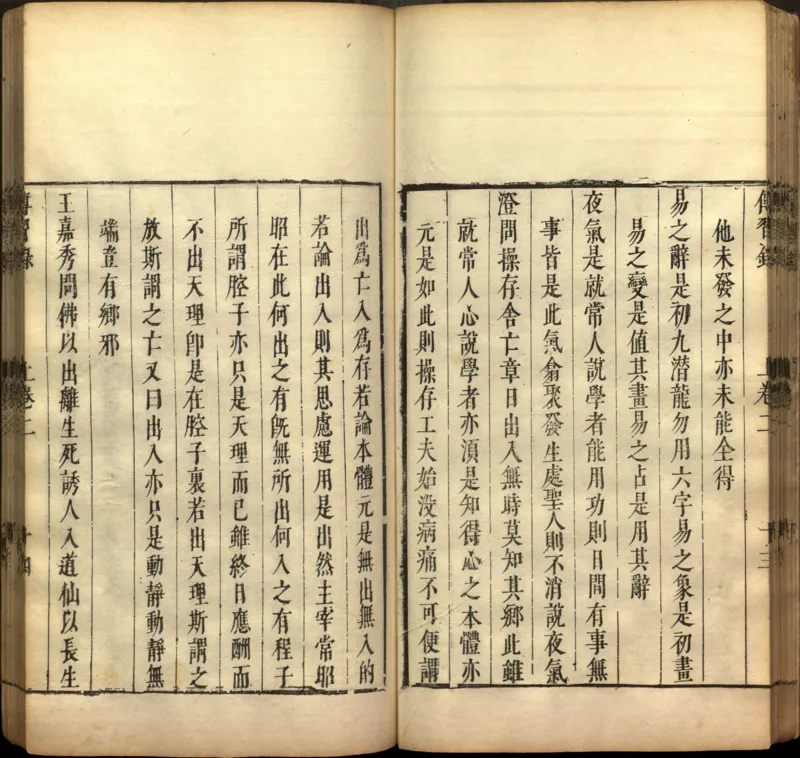 傳習錄 上卷二 十三
他未發之中亦未能全得
易之辭是初九潛龍勿用六字易之象是初畫
易之變是值其畫易之占是用其辭
夜氣是就常人說學者能用功則日間有事無
事皆是此氣翕聚發生處聖人則不消說夜氣
澄問操存舍亡章曰出入無時莫知其鄉此雖
就常人心說學者亦須是知得心之本體亦
元是如此則操存工夫始沒病痛不可便謂
出為亡入為存若論本體元是無出無入的
若論出入則其思慮運用是出然主宰常昭
昭在此何出之有旣無所出何入之有程子
所謂腔子亦只是天理而已雖終日應酬而
不出天理卽是在腔子裏若出天理斯謂之
放斯謂之亡又曰出入亦只是動靜動靜無
端豈有鄉邪
王嘉秀問佛以出離生死誘人入道仙以長生
傳習錄 上卷二 十四